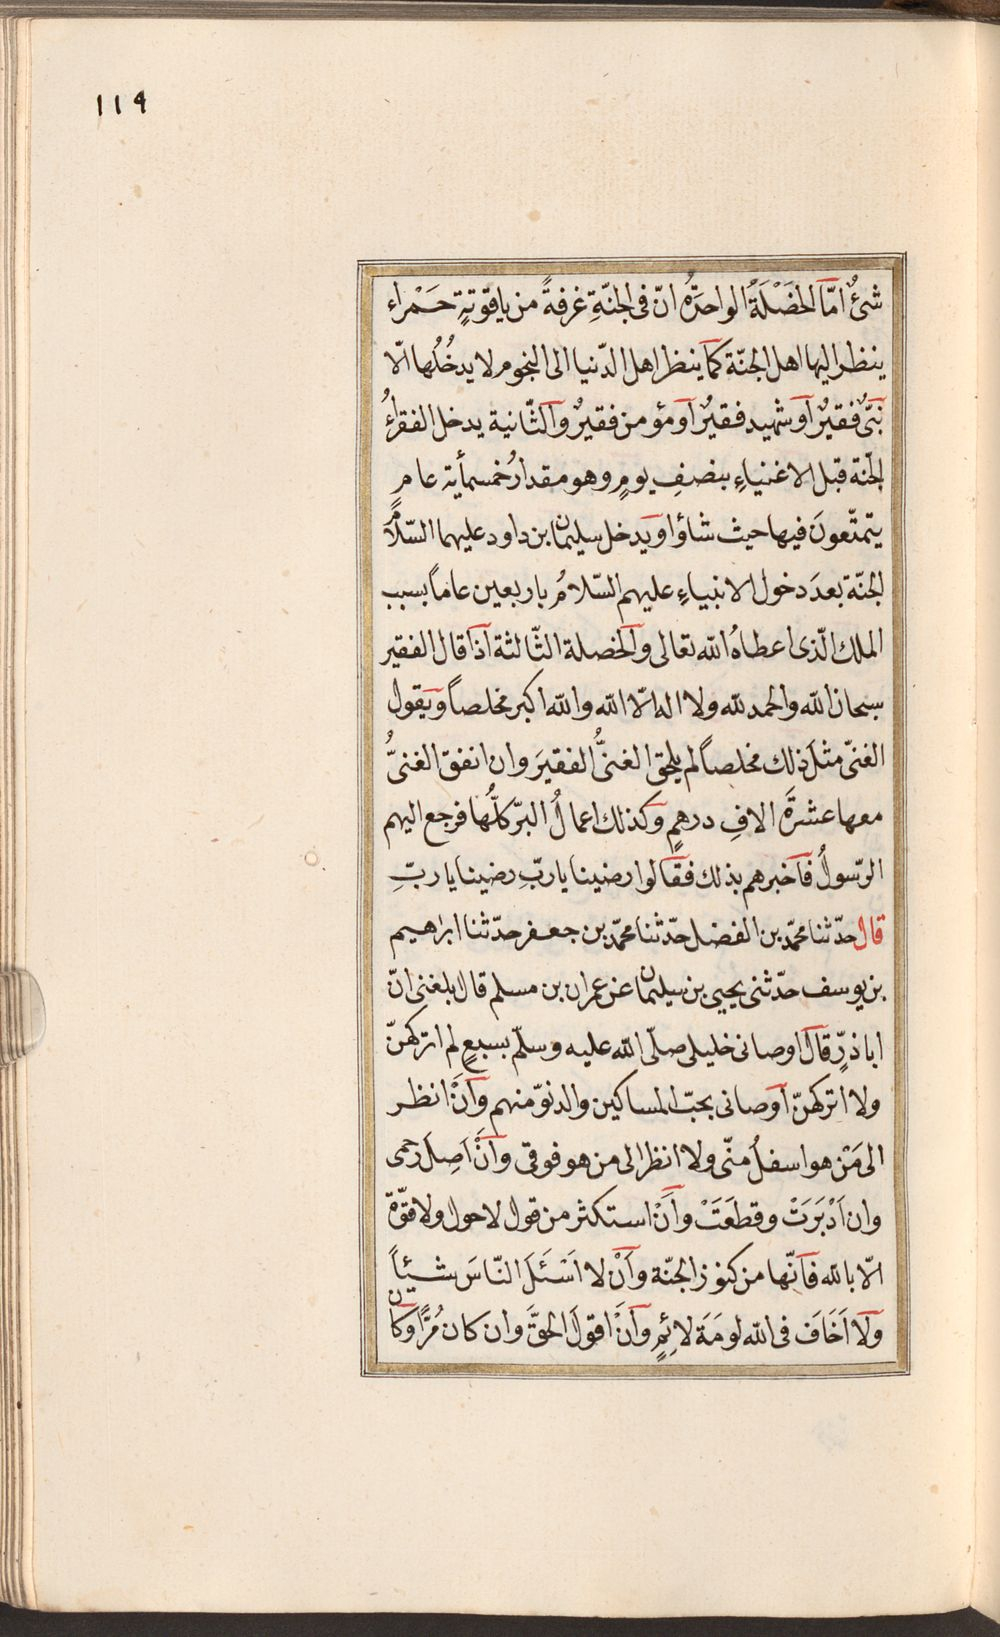 ١١٩
شئٌ امّا الخَصْلَةُ الواحدةُ انّ فى الجنّةِ غرفةً من ياقوتةٍ حَمْراء
ينظر اليها اهل الجنّة كما ينظر اهل الدّنيا الى النجوم لا يدخُلُها الّا
نبىٌّ فقيرٌ او شهيد فقيرٌ او مؤمن فقيرٌ والثّانية يدخل الفقراءُ
الجنّة قبل الاغنياءِ بنصفِ يومٍ وهو مقدارُ خمسمأية عامٍ
يتمتّعونَ فيها حيث شاؤا ويدخل سليمان بن داود عليهما السّلامُ
الجنّة بعدَ دخول الانبياءِ عليهم السّلامُ باربعين عاماً بسبب
الملك الّذى اعطاهُ الله تعالى والخصلة الثّالثة اذا قال الفقير
سبحان الله والحمد لله ولا اله الّا الله والله اكبر مخلصاً ويقول
الغنىّ مثلَ ذلك مخلصاً لم يلحق الغنىُّ الفقيرَ وان انفق الغنىُّ
معها عشرةَ الافِ درهمٍ وكذلك اعمالُ البرّ كلُّها فرجع اليهم
الرّسولُ فاخبرهم بذلك فقالوا رضينا ياربّ رضينا ياربّ
قال حدّثنا محمّد بن الفضل حدّثنا محمّد بن جعفر حدّثنا ابراهيم
بن يوسف حدّثنى يحيى بن سليمان عن عمران بن مسلم قال بلغنى انّ
اباذرٍّ قال اوصانى خليلى صلّى الله عليه وسلّم بسبعٍ لم اتركهنّ
ولا اتركهنّ اوصانى بحبّ المساكين والدنوّ منهم وانْ انظر
الى مَن هو اسفلُ منّى ولا انظر الى من هو فوقى وانْ اَصِلَ رحمى
وان اَدْبَرَتْ وقطعَتْ وانْ استكثر من قول لاحول ولا قوّة
الّا بالله فانّها من كنوز الجنّة وانْ لا اَسْئَلَ النّاسَ شيئاً
ولا اَخَافَ فى الله لومَةَ لائِمٍ وانْ اقولَ الحقَّ وان كان مُرًّا وكان